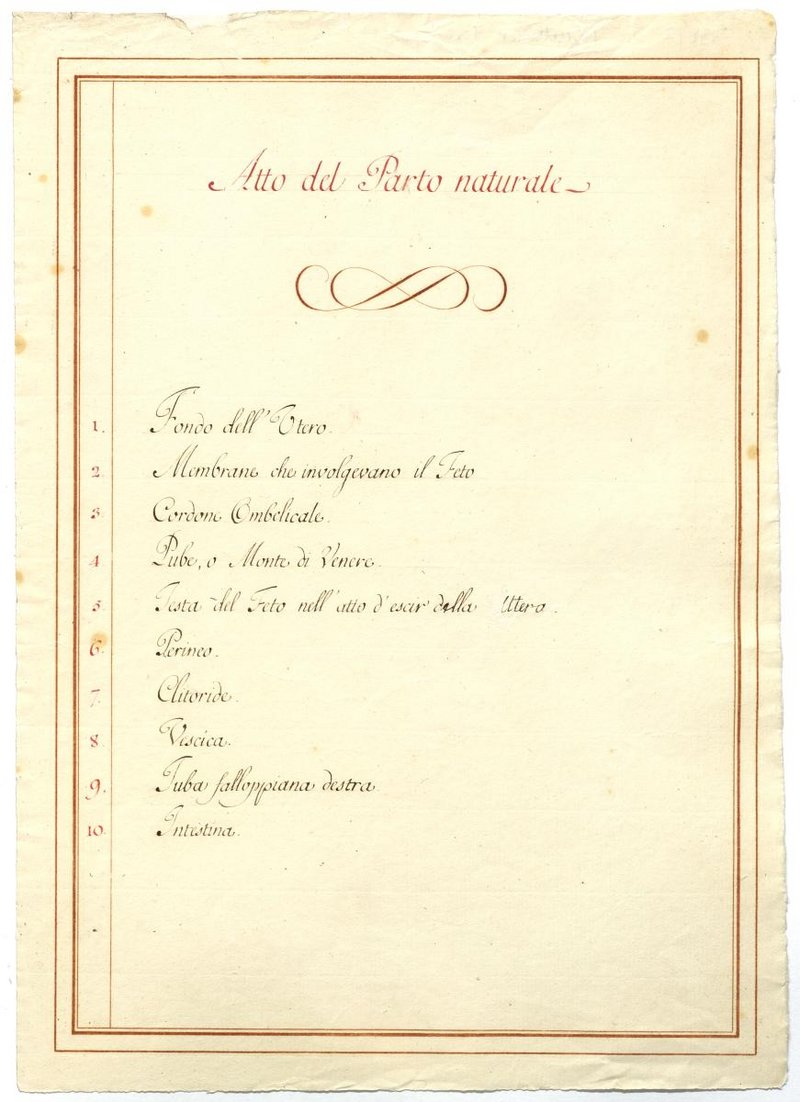 Atto del Parto naturale
1. Fondo dell'Utero.
2 Membrane che involgevano il Feto
3. Cordone Ombelicale.
4 Pube, o Monte di Venere.
5 Testa del Feto nell'atto d'escir della Utero.
6. Perineo.
7. Clitoride.
8 Vescica.
9. Tuba falloppiana destra
10. Intestina.